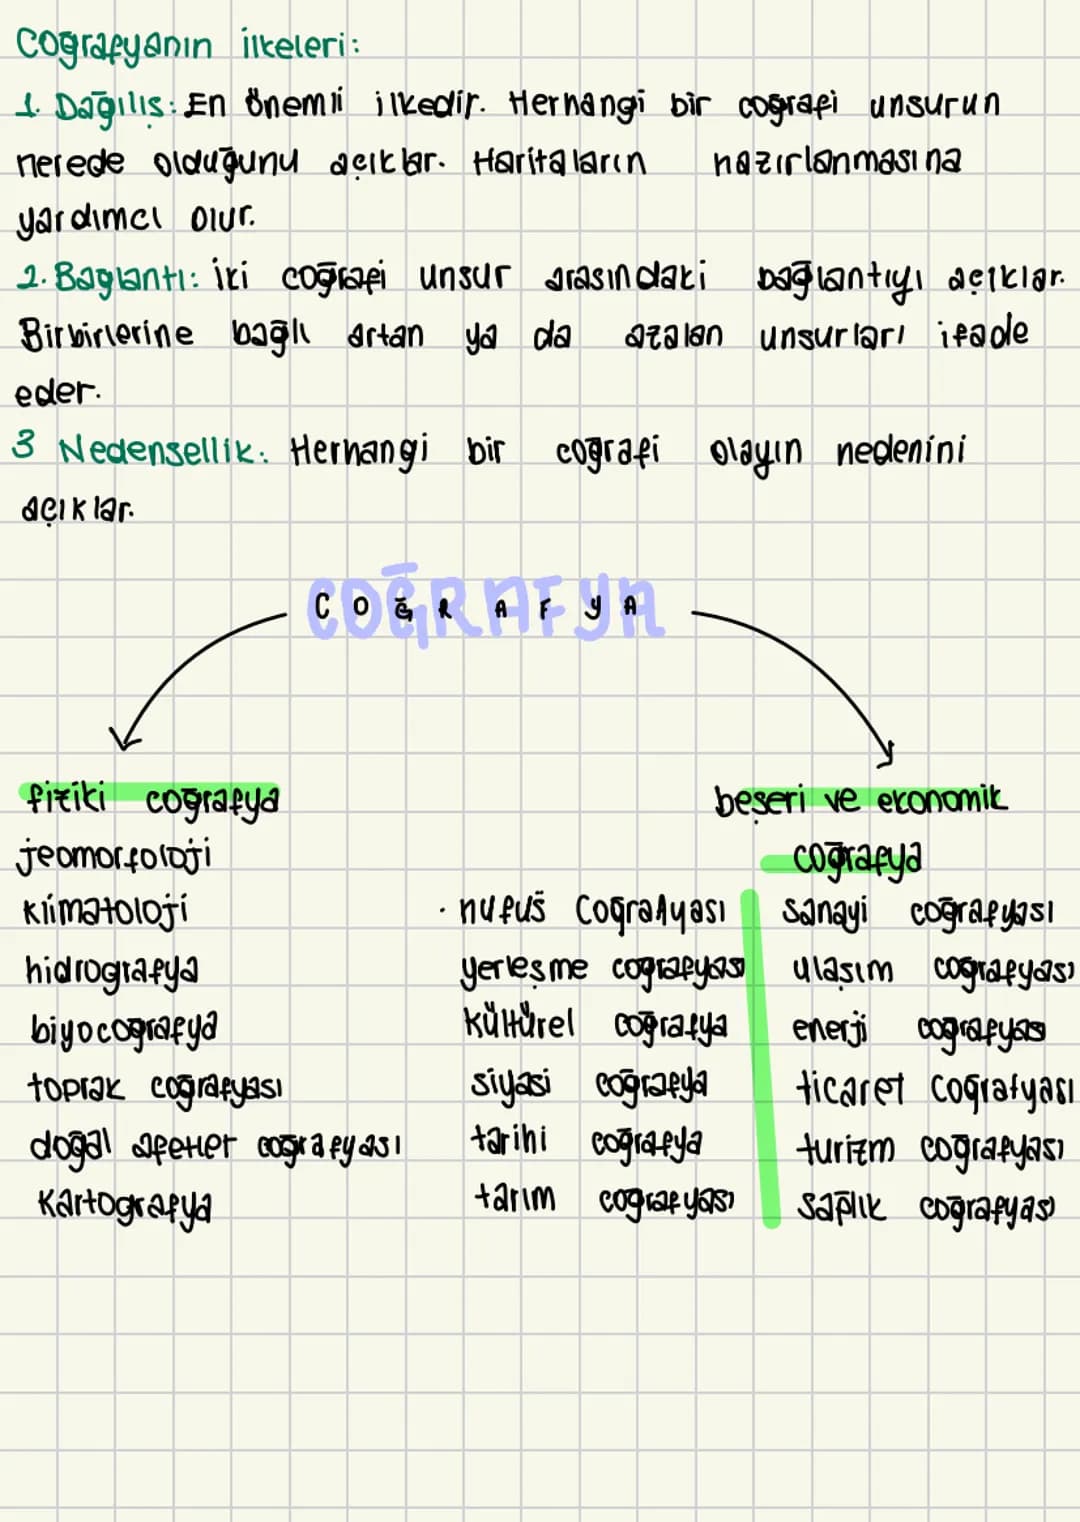 Coğrafyanın ilkeleri:
1. Dağılış: En önemli ilkedir. Herhangi bir coğrafi unsurun
nerede olduğunu açıklar. Haritaların hazırlanmasına
yardımcı olur.
2. Bağlantı: İki coğrafi unsur arasındaki bağlantıyı açıklar.
Birbirlerine bağlı artan ya da azalan unsurları ifade
eder.
3 Nedensellik: Herhangi bir coğrafi olayın nedenini
açıklar.
COĞRAFYA
fiziki coğrafya
jeomorfoloji
klimatoloji
hidrografya
biyocoğrafya
toprak coğrafyası
doğal afetler coğrafyası
Kartografya
beşeri ve ekonomik
coğrafya
· nufus Coğrafyası
yerleşme coğrafyası
kültürel coğrafya
siyasi coğrafya
tarihi coğrafya
tarım coğrafyası
sanayi coğrafyası
ulaşım coğrafyası
enerji coğrafyası
ticaret coğrafyası
turizm coğrafyası
sağlık coğrafyası